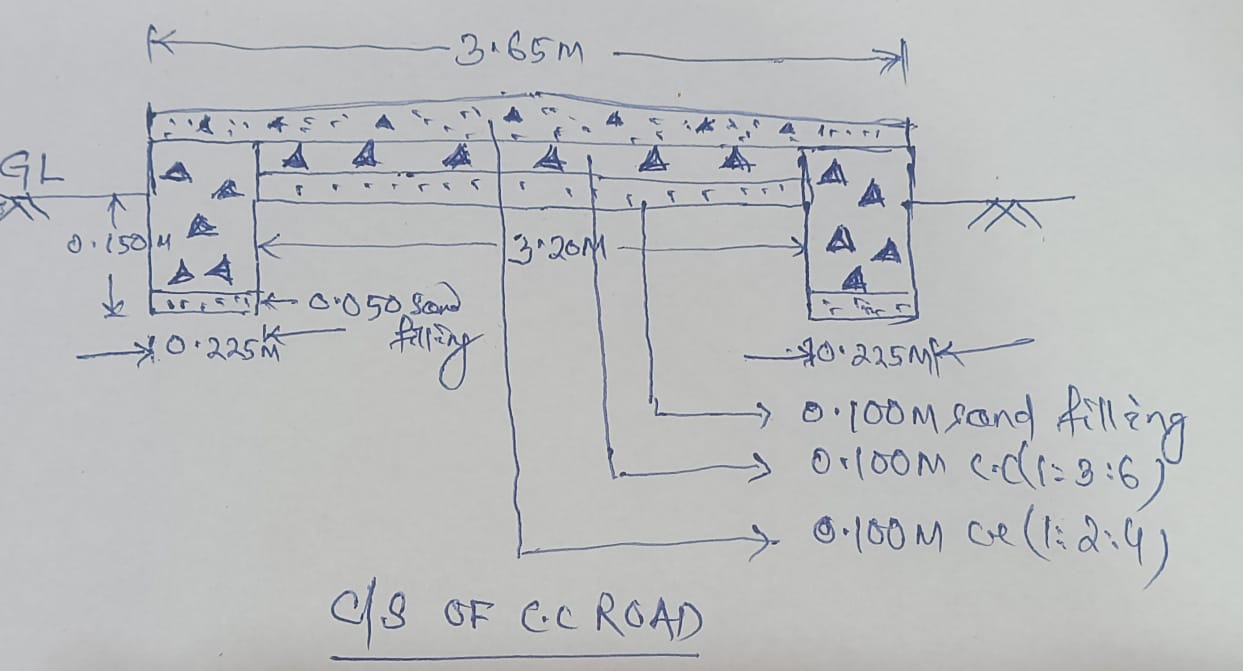 3.65M
GL
0.150M
3.20M
0.050 sand
filling
0.225M
0.225M
0.100M sand filling
0.100M C.C(1:3:6)
0.100M CC(1:2:4)
C/S OF C.C ROAD